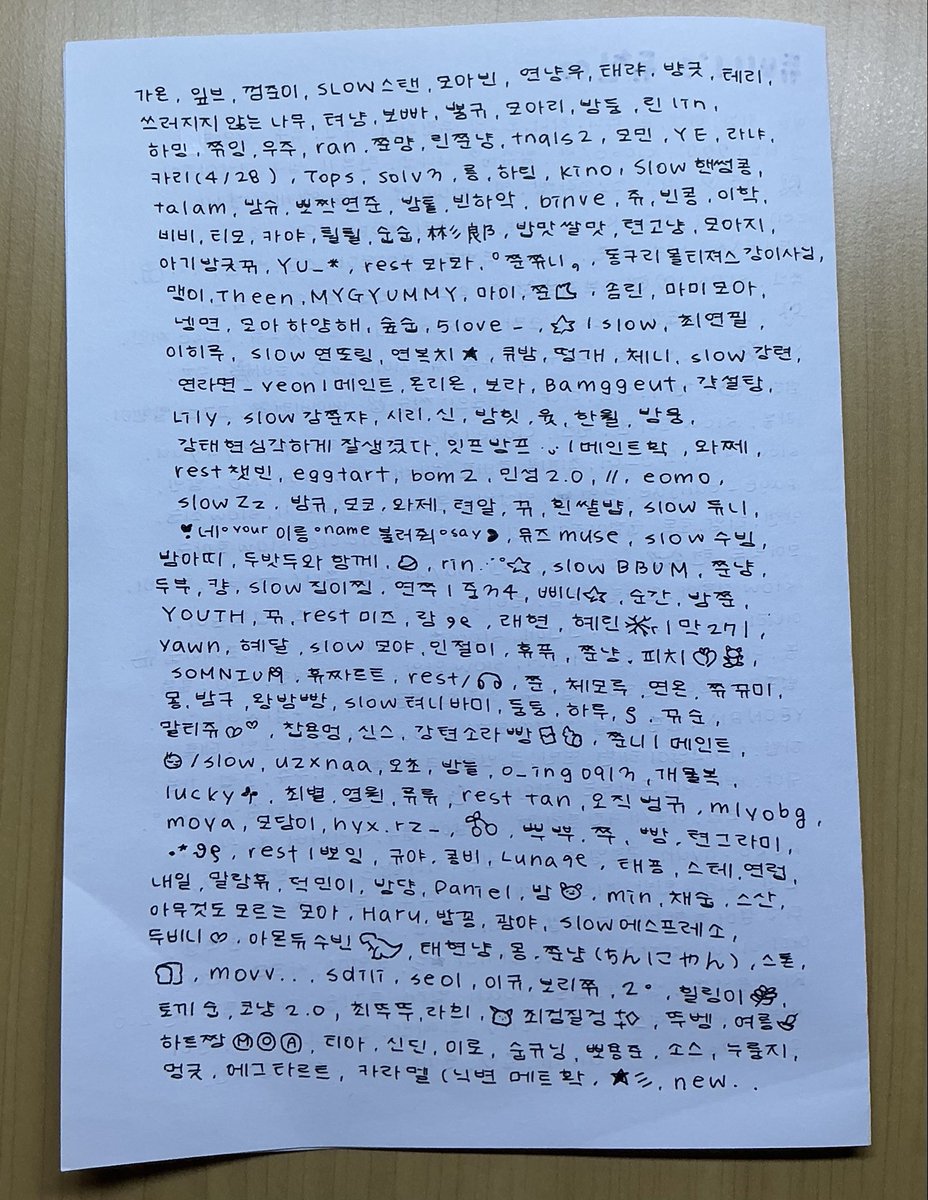 가온, 잎브, 껌쥰이, SLOW스탠, 모아빈, 연냥우, 태랴, 뱡귯, 테리,
쓰러지지 않는 나무, 텨냥, 보빠, 뿡규, 모아리, 밤듵, 린 lin,
하밍, 쮺잉, 우주, ran, 쭌먕, 린쭌냥, tnals2, 모민, YE, 라냐,
카리(4/28), Tops, solvπ, 룡, 하팀, kino, slow 핸썸콩,
talam, 밤슈, 뽀짝연준, 밤톨, 빈하악, binve, 쥬, 빈콩, 이학,
비비, 티모, 카야, 순순, 林彡郎, 밥맛쌀맛, 텬고냥, 모아지,
아기방귯뀨, YU_*, rest 와와, °쭌쮸니。, 동구리몰티져스강이사님,
맥이, Theen, MYGYUMMY, 마이, 쭌, 솜린, 마미모아,
넹면, 모아 하양해, 숲순, 5love_, ☆ | slow, 최연필,
이히루, slow 연또링, 연복치★, 큐밤, 떵개, 체니, slow 강련,
연라면_yeon|메인트, 온리온, 보라, Bamggeut, 각설탕,
Lily, slow 감쭌쟈, 시리, 신, 밤힛, 윳, 한월, 밤용,
강태현심각하게 잘생겼다, 잇프방프 ·ᴗ·|메인트확, 와쩨,
rest 챗빈, eggtart, bom2, 민섭2.0, //, eomo,
slow Zz, 밤규, 모코, 와제, 텬알, 뀨, 흰쌀뱝, slow 듀니,
♥네°your 이름°name 불러줘°say❥, 뮤즈 muse, slow 수빔,
밤아띠, 두밧두와 함께, rin.·˙☆, slow BBUM, 쭌냥,
두부, 컁, slow 집이찜, 연쮹|준34, 삐니☆, 순간, 밤쭌,
YOUTH, 뀨, rest 미즈, 람 ୨୧, 래현, 혜린
yawn, 혜달, slow 모야, 인절미, 휴퓨, 쭌냥, 피치♡,
SOMNIUM, 휴짜르트, rest/🎧, 쭌, 체모루, 연온, 쮸뀨미,
몽, 밤구, 왕밤빵, slow 텨니바미, 둥둥, 하투, ყ, 뀨순,
말티쥬♡♡, 찹용명, 신스, 강텬소라빵, 쭌니|메인트,
/slow, uzxnaa, 오초, 밤늘, o_ing091π, 개물복
lucky♣, 최별, 영원, 류류, rest tan, 오직 범규, mlyobg,
moya, 모담이, hyx.rz_, 🍒, 쁘쀼, 쮹, 빵, 텬그라미,
.*୨୧, rest|뽀잉, 규야, 콩비, Lunage, 태픙, 스테, 연럽,
내일, 말랑휴, 덕민이, 방댱, Daniel, 밤, min, 채숩, 스산,
아무것도 모르는 모아, Haru, 밤꽁, 광야, slow에스프레소,
두비니♡, 아몬듀수빈, 태현냥, 몽, 쭌냥 (ちんにゃん), 스톤,
movv..., sdili, seol, 이규, 보리쮸, 2°, 힐링이
토끼순, 코냥2.0, 최뚝뚝, 라희, 최정질정, 뚜벵, 여름
하트짱ⓂⓄⒶ, 티아, 신딘, 이로, 숩규닝, 뽀용쥰, 소스, 누룽지,
멍귯, 에그타르트, 카라멜 (닉변 메트확, ★彡, new..